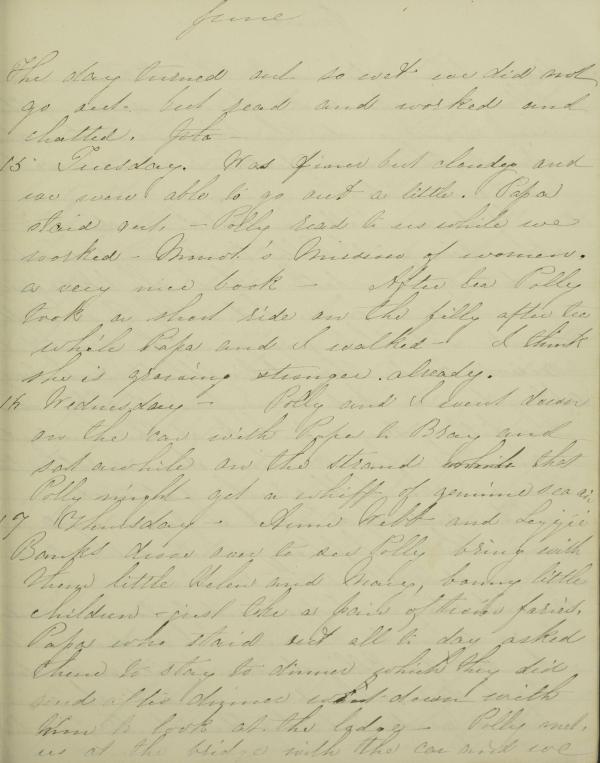 June
The day turned out so wet we did not
go out but read and worked and
chatted.
15 Tuesday. Was finer but cloudy and
we were able to go out a little. Papa
staid out - Polly read to us while we
worked - Monod's Mission of women.
a very nice book - After tea Polly
took a short ride on the filly after tea
while Papa and I walked - I think
she is growing stronger already.
16 Wednesday - Polly and I went down
on the car with Papa to Bray and
sat awhile on the strand that
Polly might get a whiff of genuine sea air
17 Thursday - Anne Webb and Lizzie
Banks drove over to see Polly bring with
them little Helen and Mary, bonny little
children - just like a pair of twin faries.
Papa who staid out all to day asked
them to stay to dinner which they did
and after dinner went down with
him to look at the lodge - Polly met
us at the bridge with the car and we